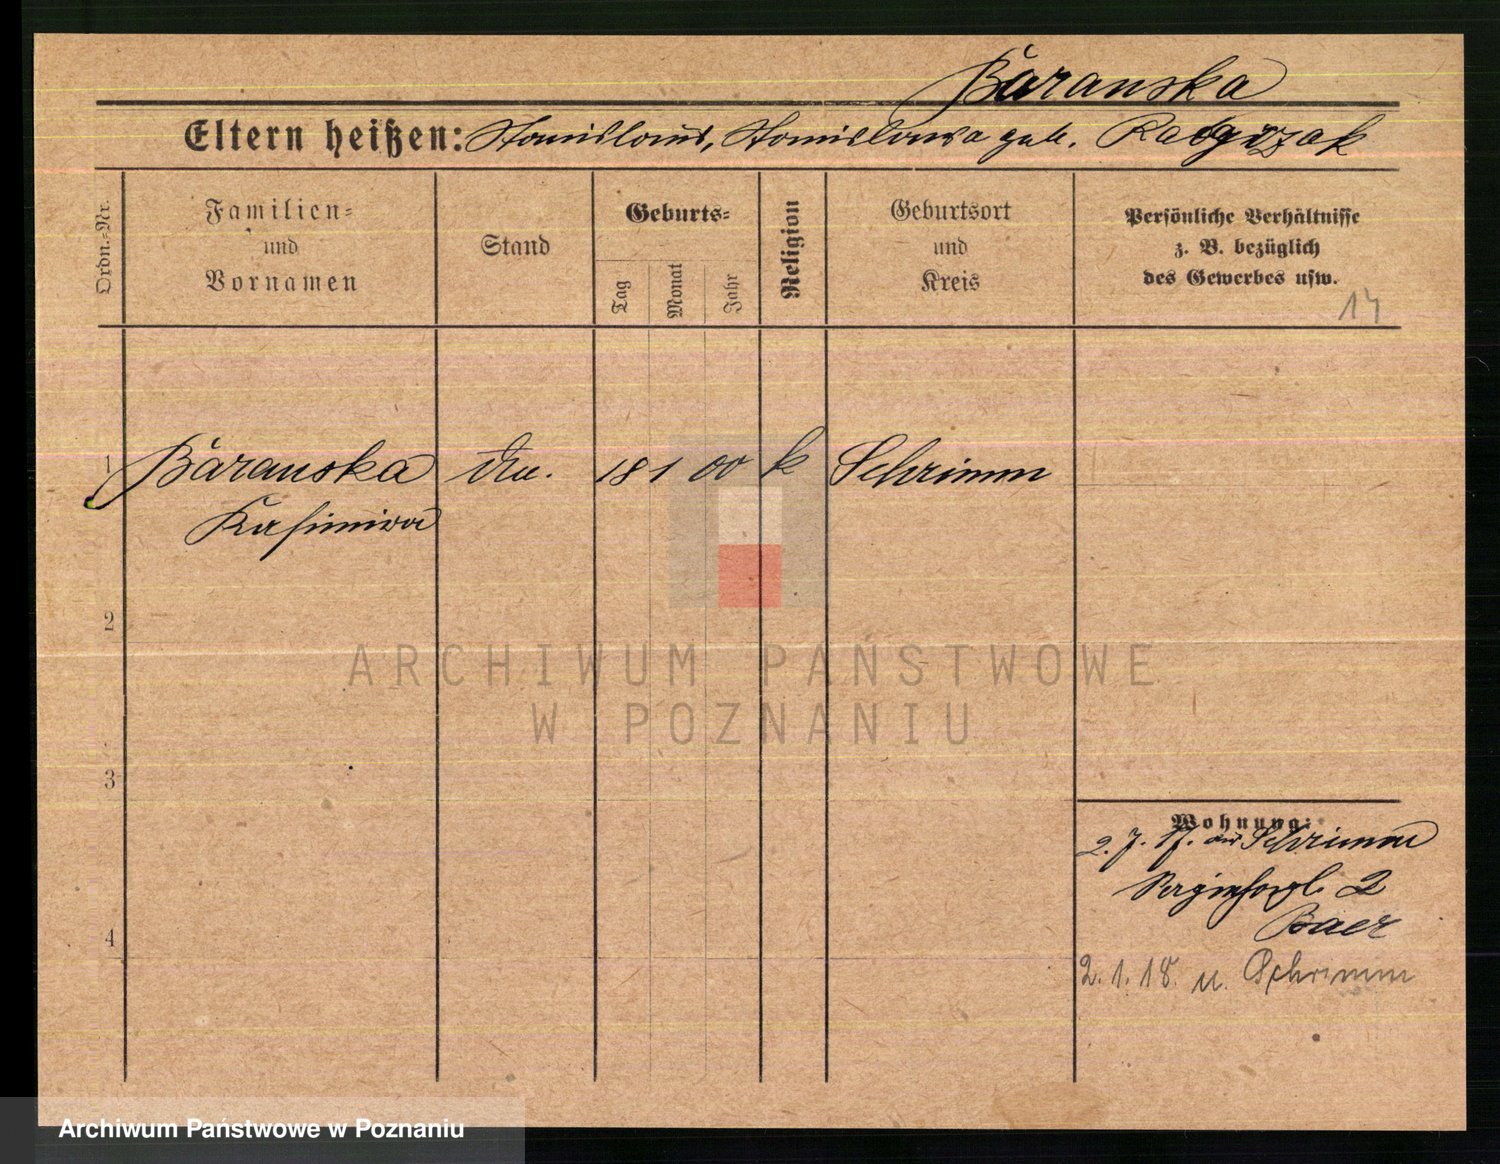 Baranska
Eltern heißen: Stanislaus, Stanislawa geb.
Ordn.-Nr.
Familien-
und
Vornamen
Stand
Geburts-
Tag
Monat
Jahr
Religion
Geburtsort
und
Kreis
Persönliche Verhältnisse
z. B. bezüglich
des Gewerbes usw.
14
1 Baranska 18 1 00 k Schrimm
Kasimira
2
3
4
Wohnung:
2.7.17. aus Schrimm
2
Baer
2.1.18. n. Schrimm
ARCHIWUM PAŃSTWOWE
W POZNANIU
Archiwum Państwowe w Poznaniu